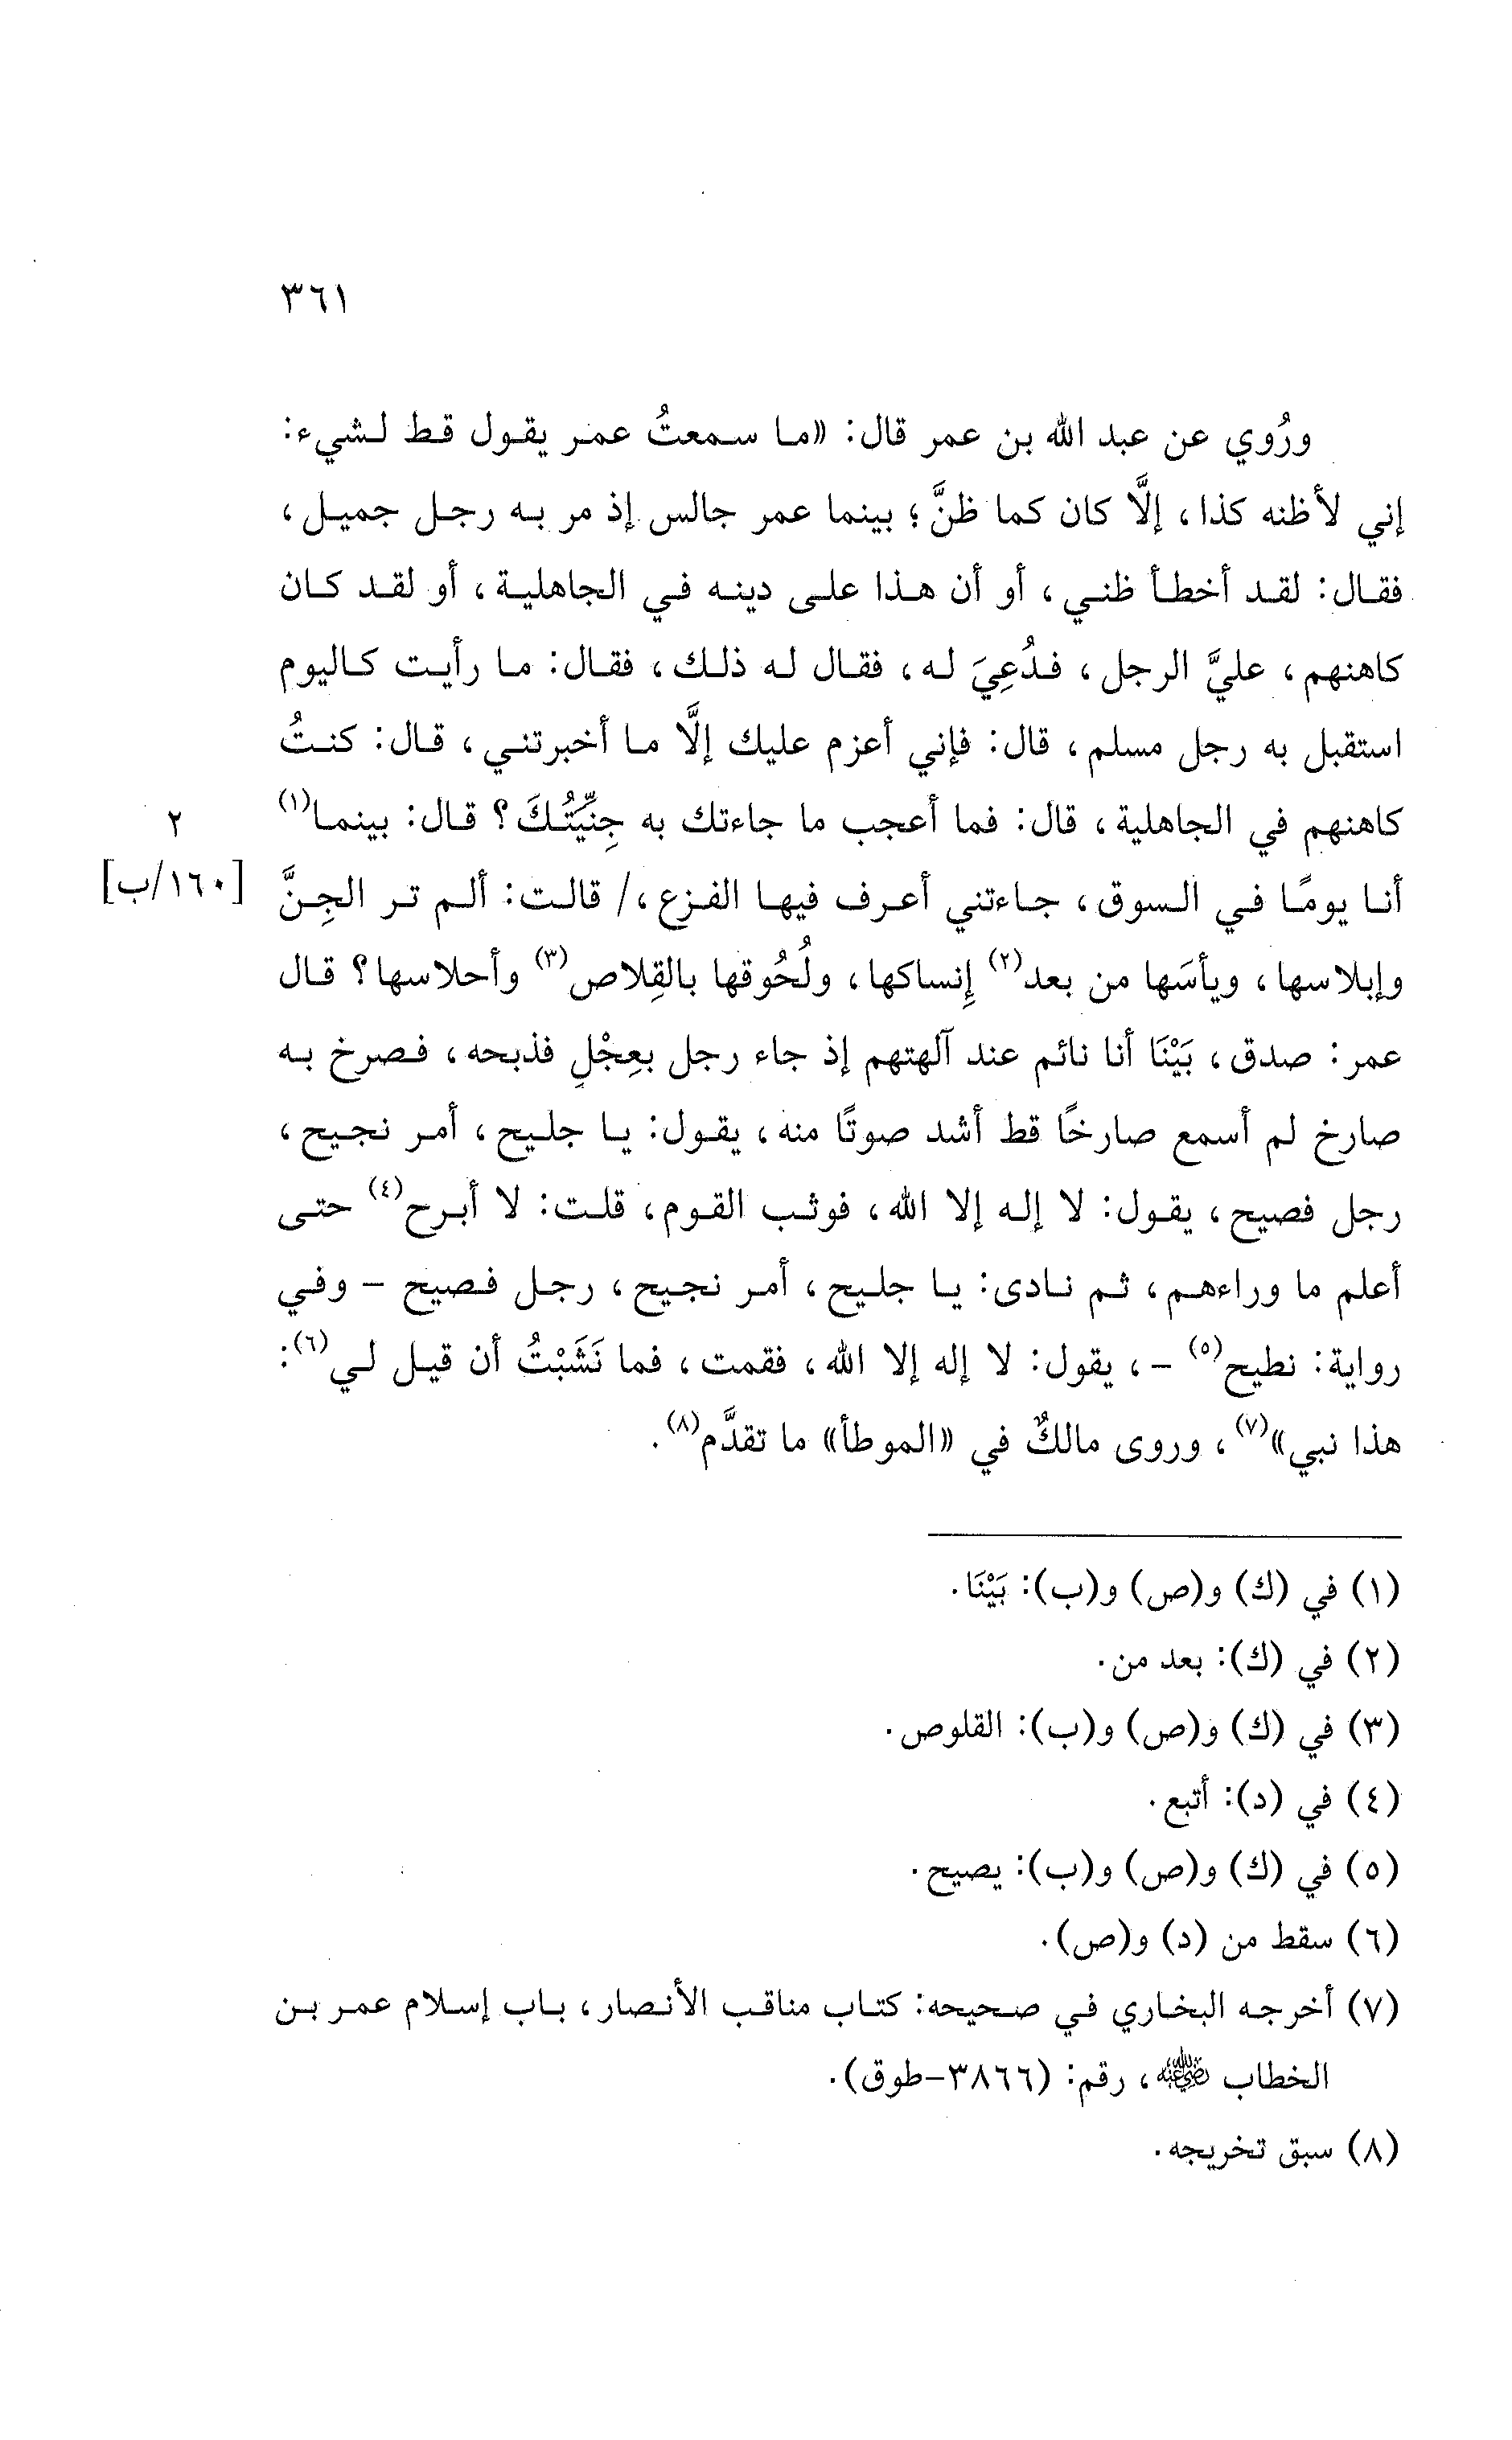 ٣٦١
ورُوي عن عبد الله بن عمر قال: «ما سمعتُ عمر يقول قط لشيء:
إني لأظنه كذا، إلَّا كان كما ظنَّ؛ بينما عمر جالس إذ مر به رجل جميل،
فقال: لقد أخطأ ظني، أو أن هذا على دينه في الجاهلية، أو لقد كان
كاهنهم، عليَّ الرجل، فدُعِيَ له، فقال له ذلك، فقال: ما رأيت كاليوم
استقبل به رجل مسلم، قال: فإني أعزم عليك إلَّا ما أخبرتني، قال: كنتُ
كاهنهم في الجاهلية، قال: فما أعجب ما جاءتك به جِنِّيَّتُكَ؟ قال: بينما(١)
٢
أنا يومًا في السوق، جاءتني أعرف فيها الفزع،/ قالت: ألم تر الجِنَّ
[١٦٠/ب]
وإبلاسها، ويأسَها من بعد(٢) إِنساكها، ولُحُوقها بالقِلاص(٣) وأحلاسها؟ قال
عمر: صدق، بَيْنَا أنا نائم عند آلهتهم إذ جاء رجل بعِجْلٍ فذبحه، فصرخ به
صارخ لم أسمع صارخًا قط أشد صوتًا منه، يقول: يا جليح، أمر نجيح،
رجل فصيح، يقول: لا إله إلا الله، فوثب القوم، قلت: لا أبرح(٤) حتى
أعلم ما وراءهم، ثم نادى: يا جليح، أمر نجيح، رجل فصيح - وفي
رواية: نطيح(٥) -، يقول: لا إله إلا الله، فقمت، فما نَشَبْتُ أن قيل لي(٦):
هذا نبي»(٧)، وروى مالكٌ في «الموطأ» ما تقدَّم(٨).
(١) في (ك) و(ص) و(ب): بَيْنَا.
(٢) في (ك): بعد من.
(٣) في (ك) و(ص) و(ب): القلوص.
(٤) في (د): أتبع.
(٥) في (ك) و(ص) و(ب): يصيح.
(٦) سقط من (د) و(ص).
(٧) أخرجه البخاري في صحيحه: كتاب مناقب الأنصار، باب إسلام عمر بن
الخطاب ﵁، رقم: (٣٨٦٦-طوق).
(٨) سبق تخريجه.